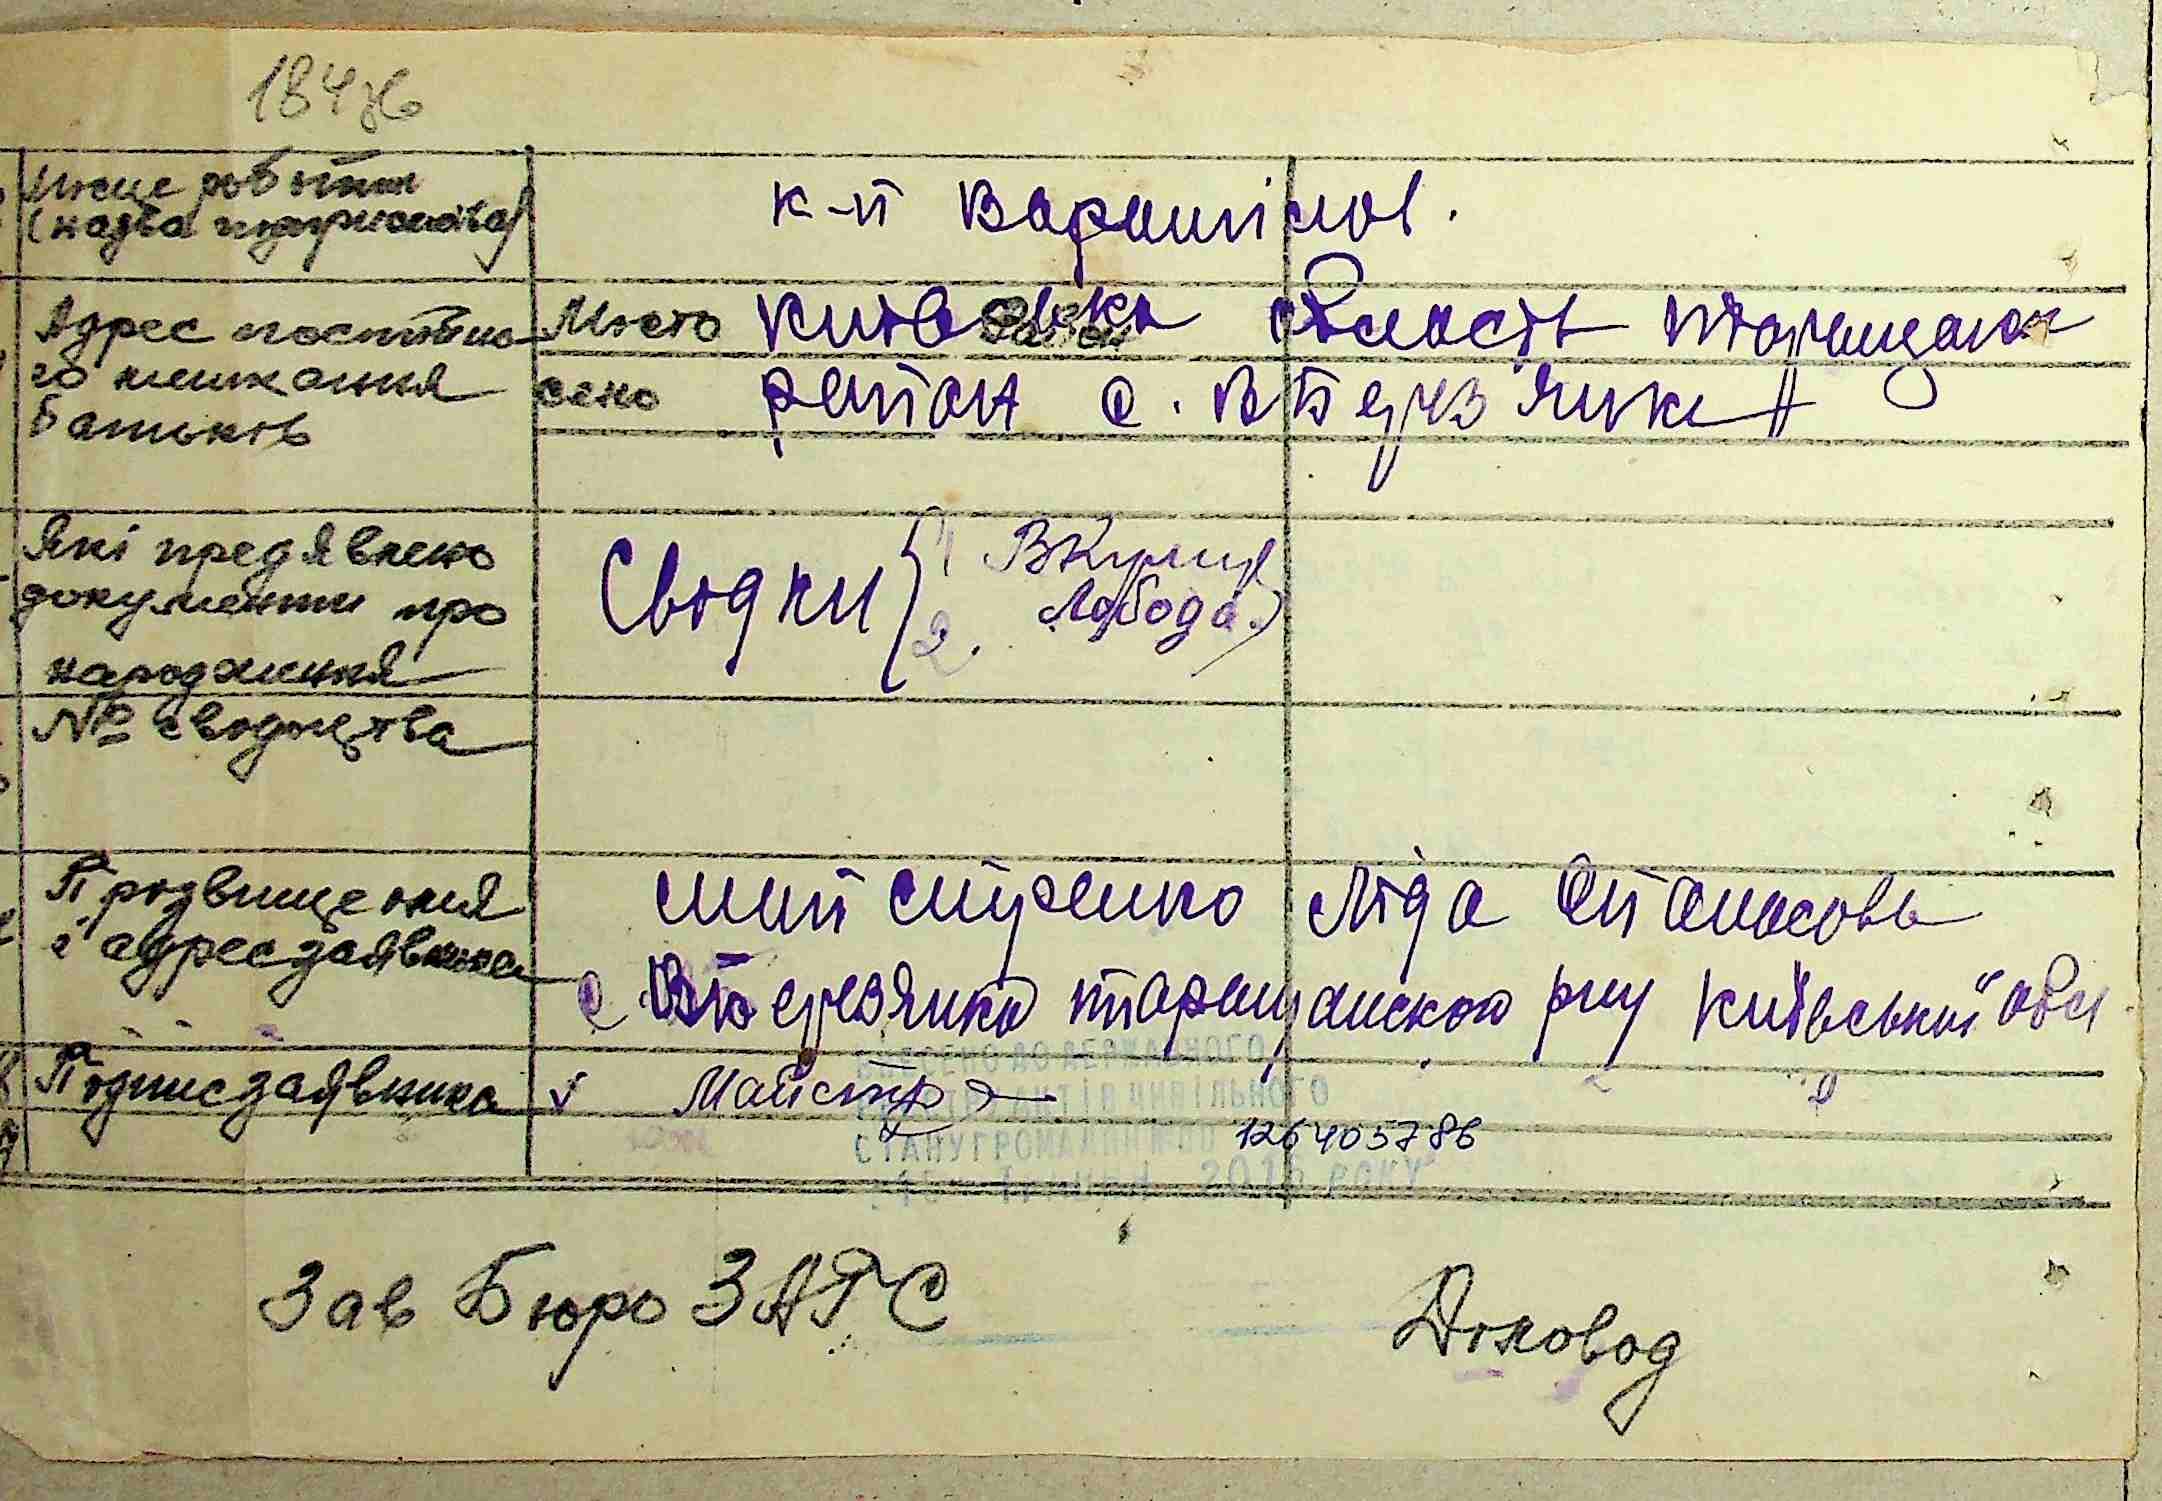 184
Місце роботи
(назва підприємства)
к-п Варашілов.
Адрес постійно
го мешкання
батьків
Місто Київська область Таращанск
село район с. В Березянка
Які предявлено
документи про
народження
Сводки { 1 ВКулиш
2. Лобода.
№ свидоцтва
Прозвище імя
і адрес заявника
Майстренко Ліда Опанасовь
с В Березянка Таращанского рну Київської обл.
Подпис заявника v Майстр
ВНЕСЕНО ДО ДЕРЖАВНОГО
РЕЄСТРУ АКТІВ ЦИВІЛЬНОГО
СТАНУ ГРОМАДЯН
126405786
201 РОКУ
Зав Бюро ЗАГС Діковод